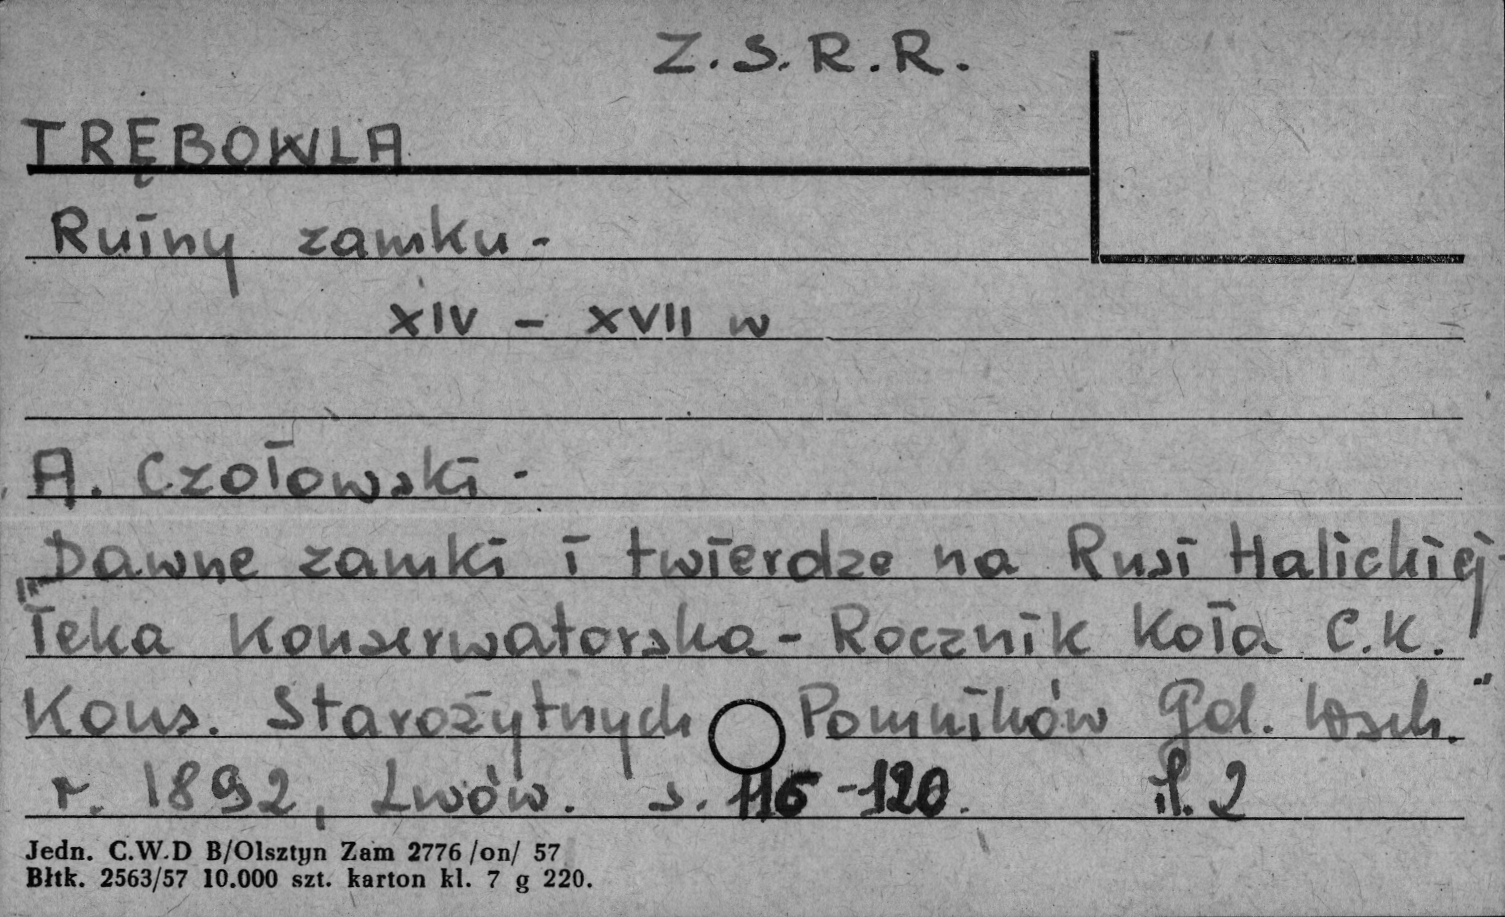 Z.S.R.R.
TRĘBOWLA
Ruiny zamku -
XIV - XVII w
A. Czołowski -
Dawne zamki i twierdze na Rusi Halickiej
"Teka Konserwatorska - Rocznik Koła C.K.
Kons. Starożytnych Pomników Gal. Wsch."
r. 1892, Lwów. s. 116-120. il. 2
Jedn. C.W.D B/Olsztyn Zam 2776 /on/ 57
Błtk. 2563/57 10.000 szt. karton kl. 7 g 220.